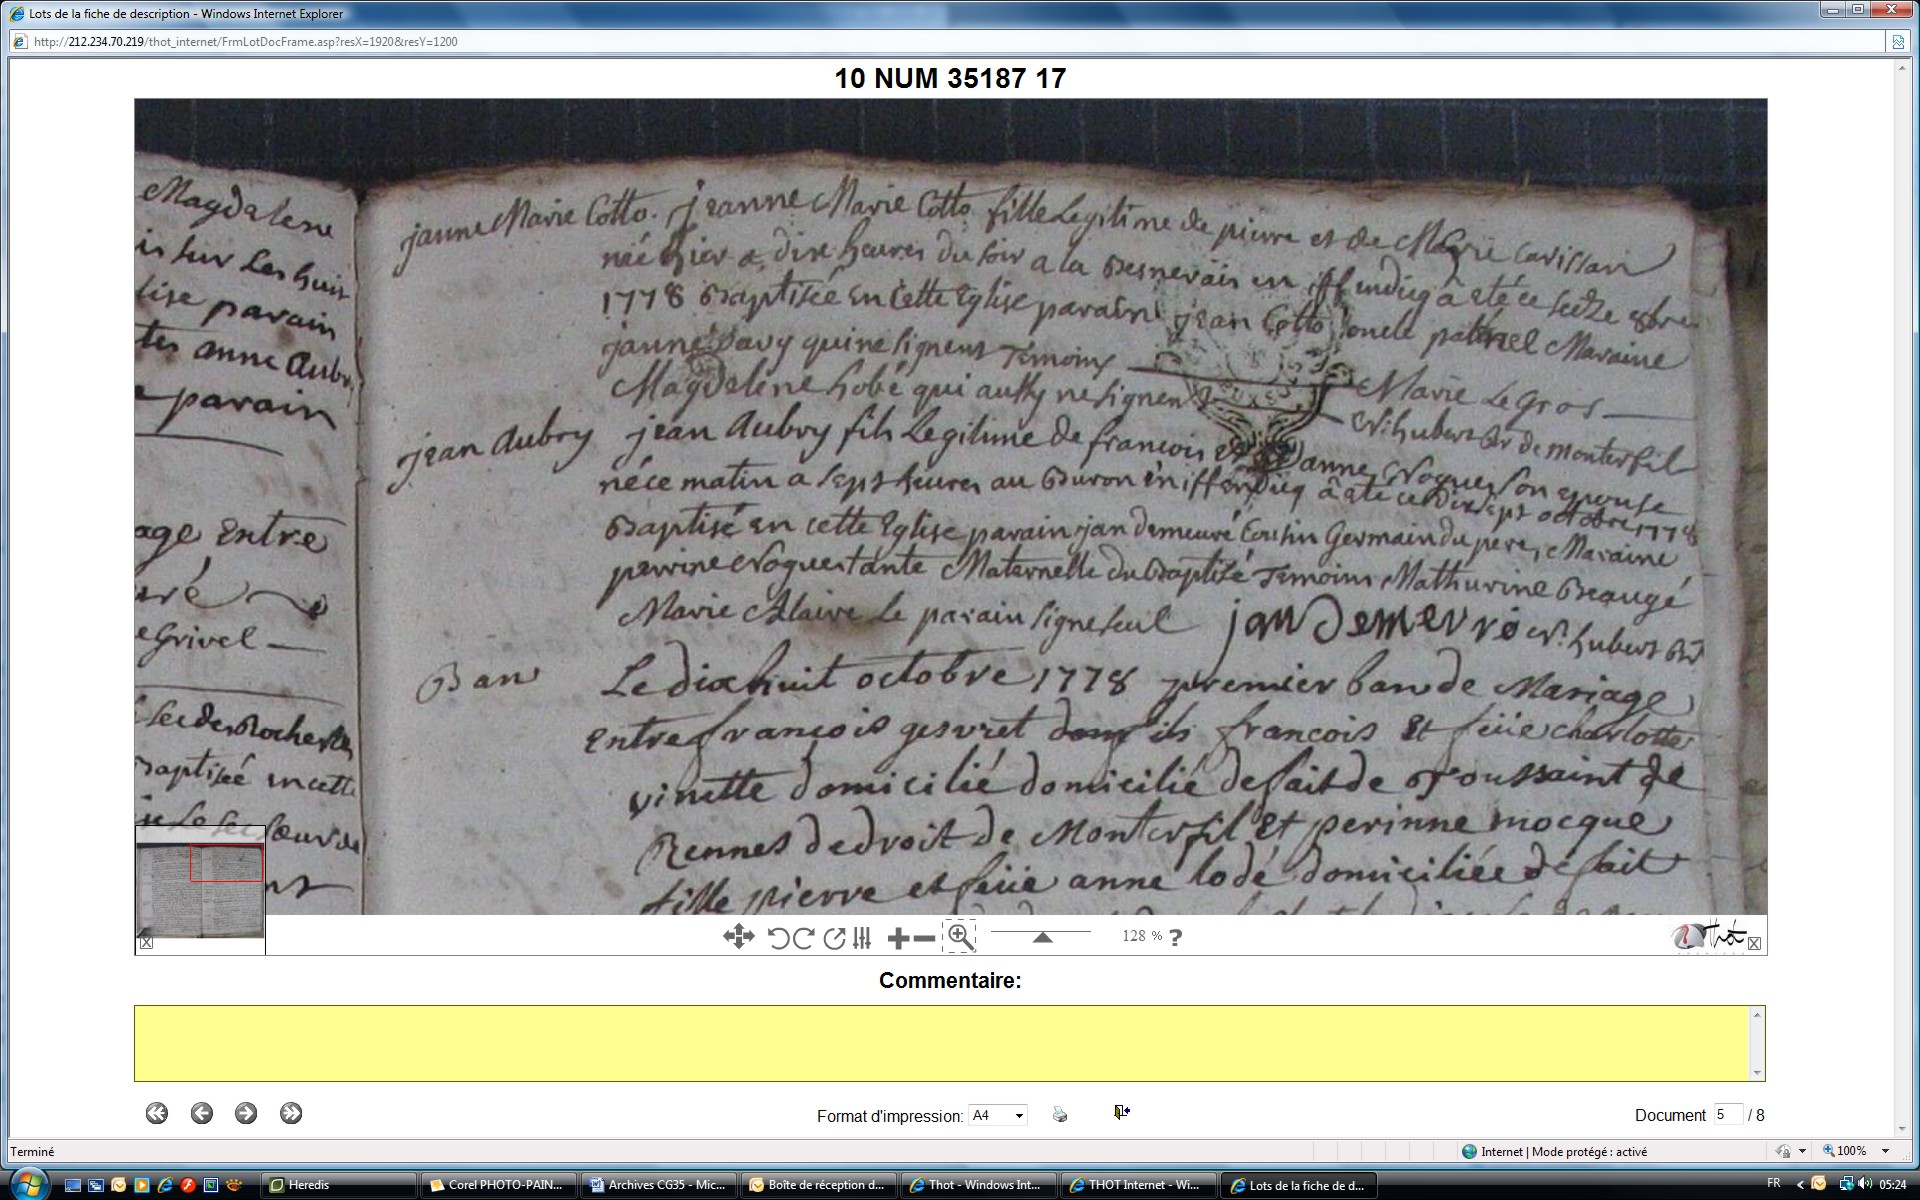 Lots de la fiche de description - Windows Internet Explorer
http://212.234.70.219/thot_internet/FrmLotDocFrame.asp?resX=1920&resY=1200
10 NUM 35187 17
Magdalene
is sur Les huit
lise parain
tes anne Aubr
e parain
age Entre
uré
e Grivel
baptisée en cette
jeanne Marie Cotto. jeanne Marie Cotto fille Legitime de pierre et de Marie Carissan
née hier a dix heures du soir a la Besnerais en iffendicq a eté ce seize 8bre
1778 Baptisée en Cette Eglise parain jean Cotto oncle paternel Maraine
janne Davy qui ne signent Temoins Marie Le Gros
Magdelene hobé qui aussy ne signent N. hubert Cr de monterfil
jean Aubry jean Aubry fils Legitime de francois et anne Nogues son epouse
né ce matin a sept heures au Buron en iffendicq a ete ce dix sept octobre 1778
Baptisé en cette Eglise parain jan demeuré Cousin Germain du pere, Maraine
perrine Nogues tante Maternelle du Baptisé Temoins Mathurine Beaugé
Marie Alaire le parain signe seul jan Demeuré N. hubert
Ban Le dix huit octobre 1778 premier ban de Mariage
Entre francois gesvret fils francois Et feüe charlotte
vinette domicilié domicilié de fait de Toussaint de
Rennes de droit de Monterfil Et perinne mocque
fille pierre et feüe anne lodé domiciliée de fait
128 % ?
Thot
Commentaire:
Format d'impression: A4
Document 5 / 8
Terminé
Internet | Mode protégé : activé
100%
Heredis
Corel PHOTO-PAIN...
Archives CG35 - Mic...
Boîte de réception d...
Thot - Windows Int...
THOT Internet - Wi...
Lots de la fiche de d...
FR
05:24